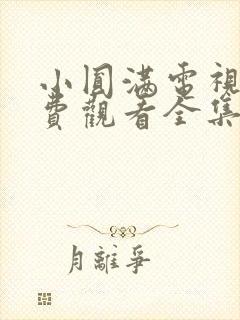 小圓滿電視
費觀看全集
月離爭